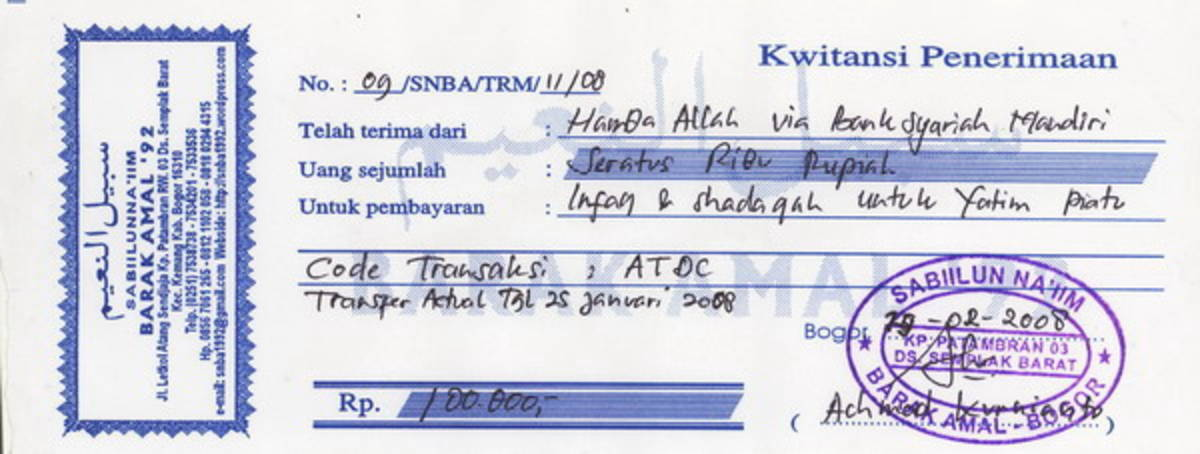 سبيل النعيم
SABIILUNNA'IIM
BARAK AMAL '92
Jl. Letkol Atang Sendjaja Kp. Patambran RW. 03 Ds. Semplak Barat
Kec. Kemang Kab. Bogor 1610
Telp. (0251) 7538738 - 7534201 - 7533536
Hp. 0856 7061 265 - 0812 1102 058 - 0818 0294 4315
e-mail: snba1992@gmail.com Webside: http://snba1992.wordpress.com
Kwitansi Penerimaan
No. : 09 /SNBA/TRM/ 11/08
Telah terima dari : Hamba Allah via Bank Syariah Mandiri
Uang sejumlah : Seratus Ribu Rupiah
Untuk pembayaran : Infaq & shadaqah untuk Yatim piatu
Code Transaksi : ATDC
Transfer Actual Tgl 25 januari 2008
سبيل النعيم
BARAK AMAL '92
Bogor, -02-2008
SABIILUN NA'IIM
KP. PATAMBRAN 03
DS. SEMPLAK BARAT
BARAK AMAL - BOGOR
Rp. 100.000,-
( Achmad )